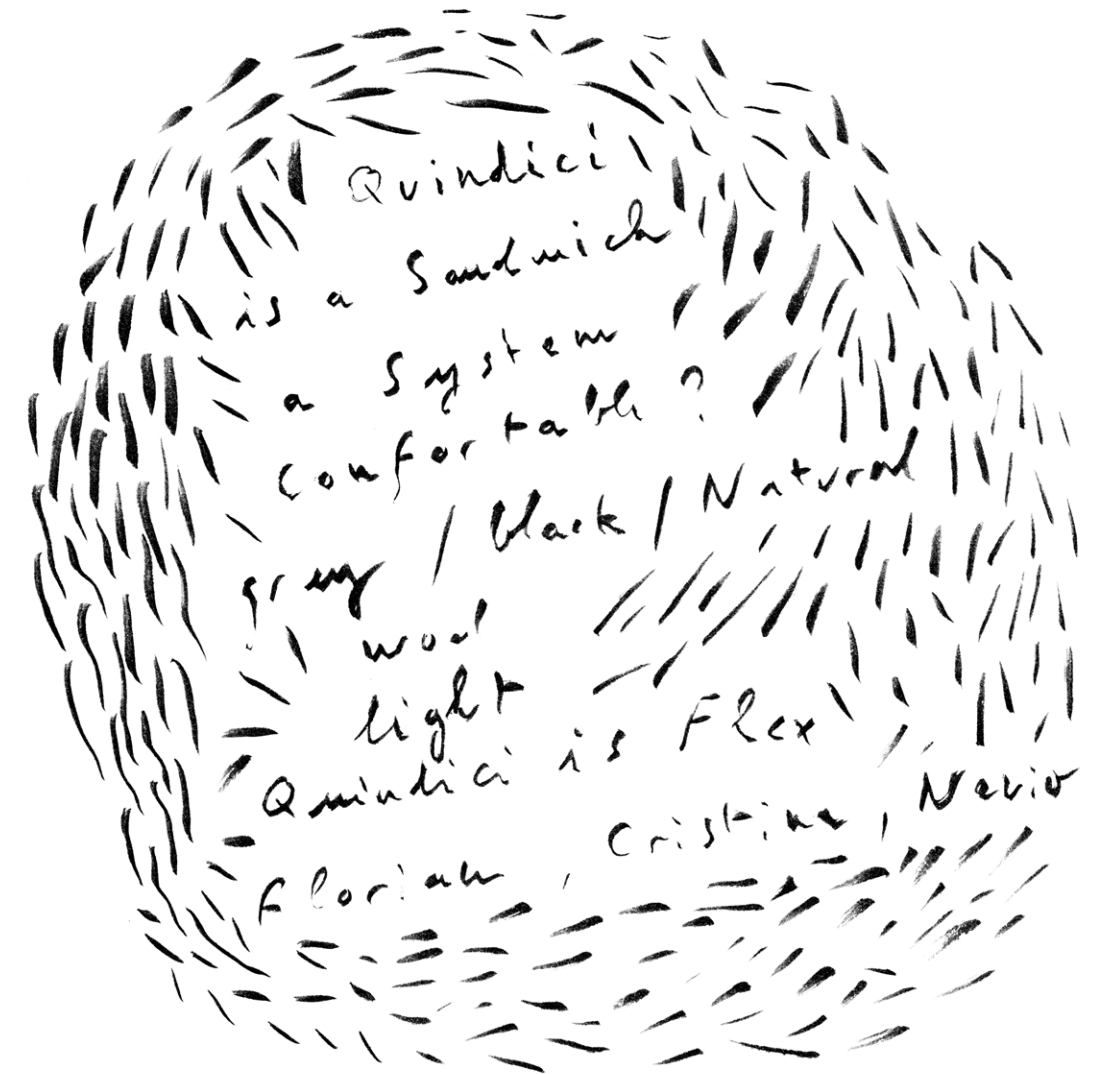 Quindici
is a Sandwich
a System
Confortable ?
grey / black / Natural
wool
light
Quindici is Flex
Florian , Cristina , Nerio